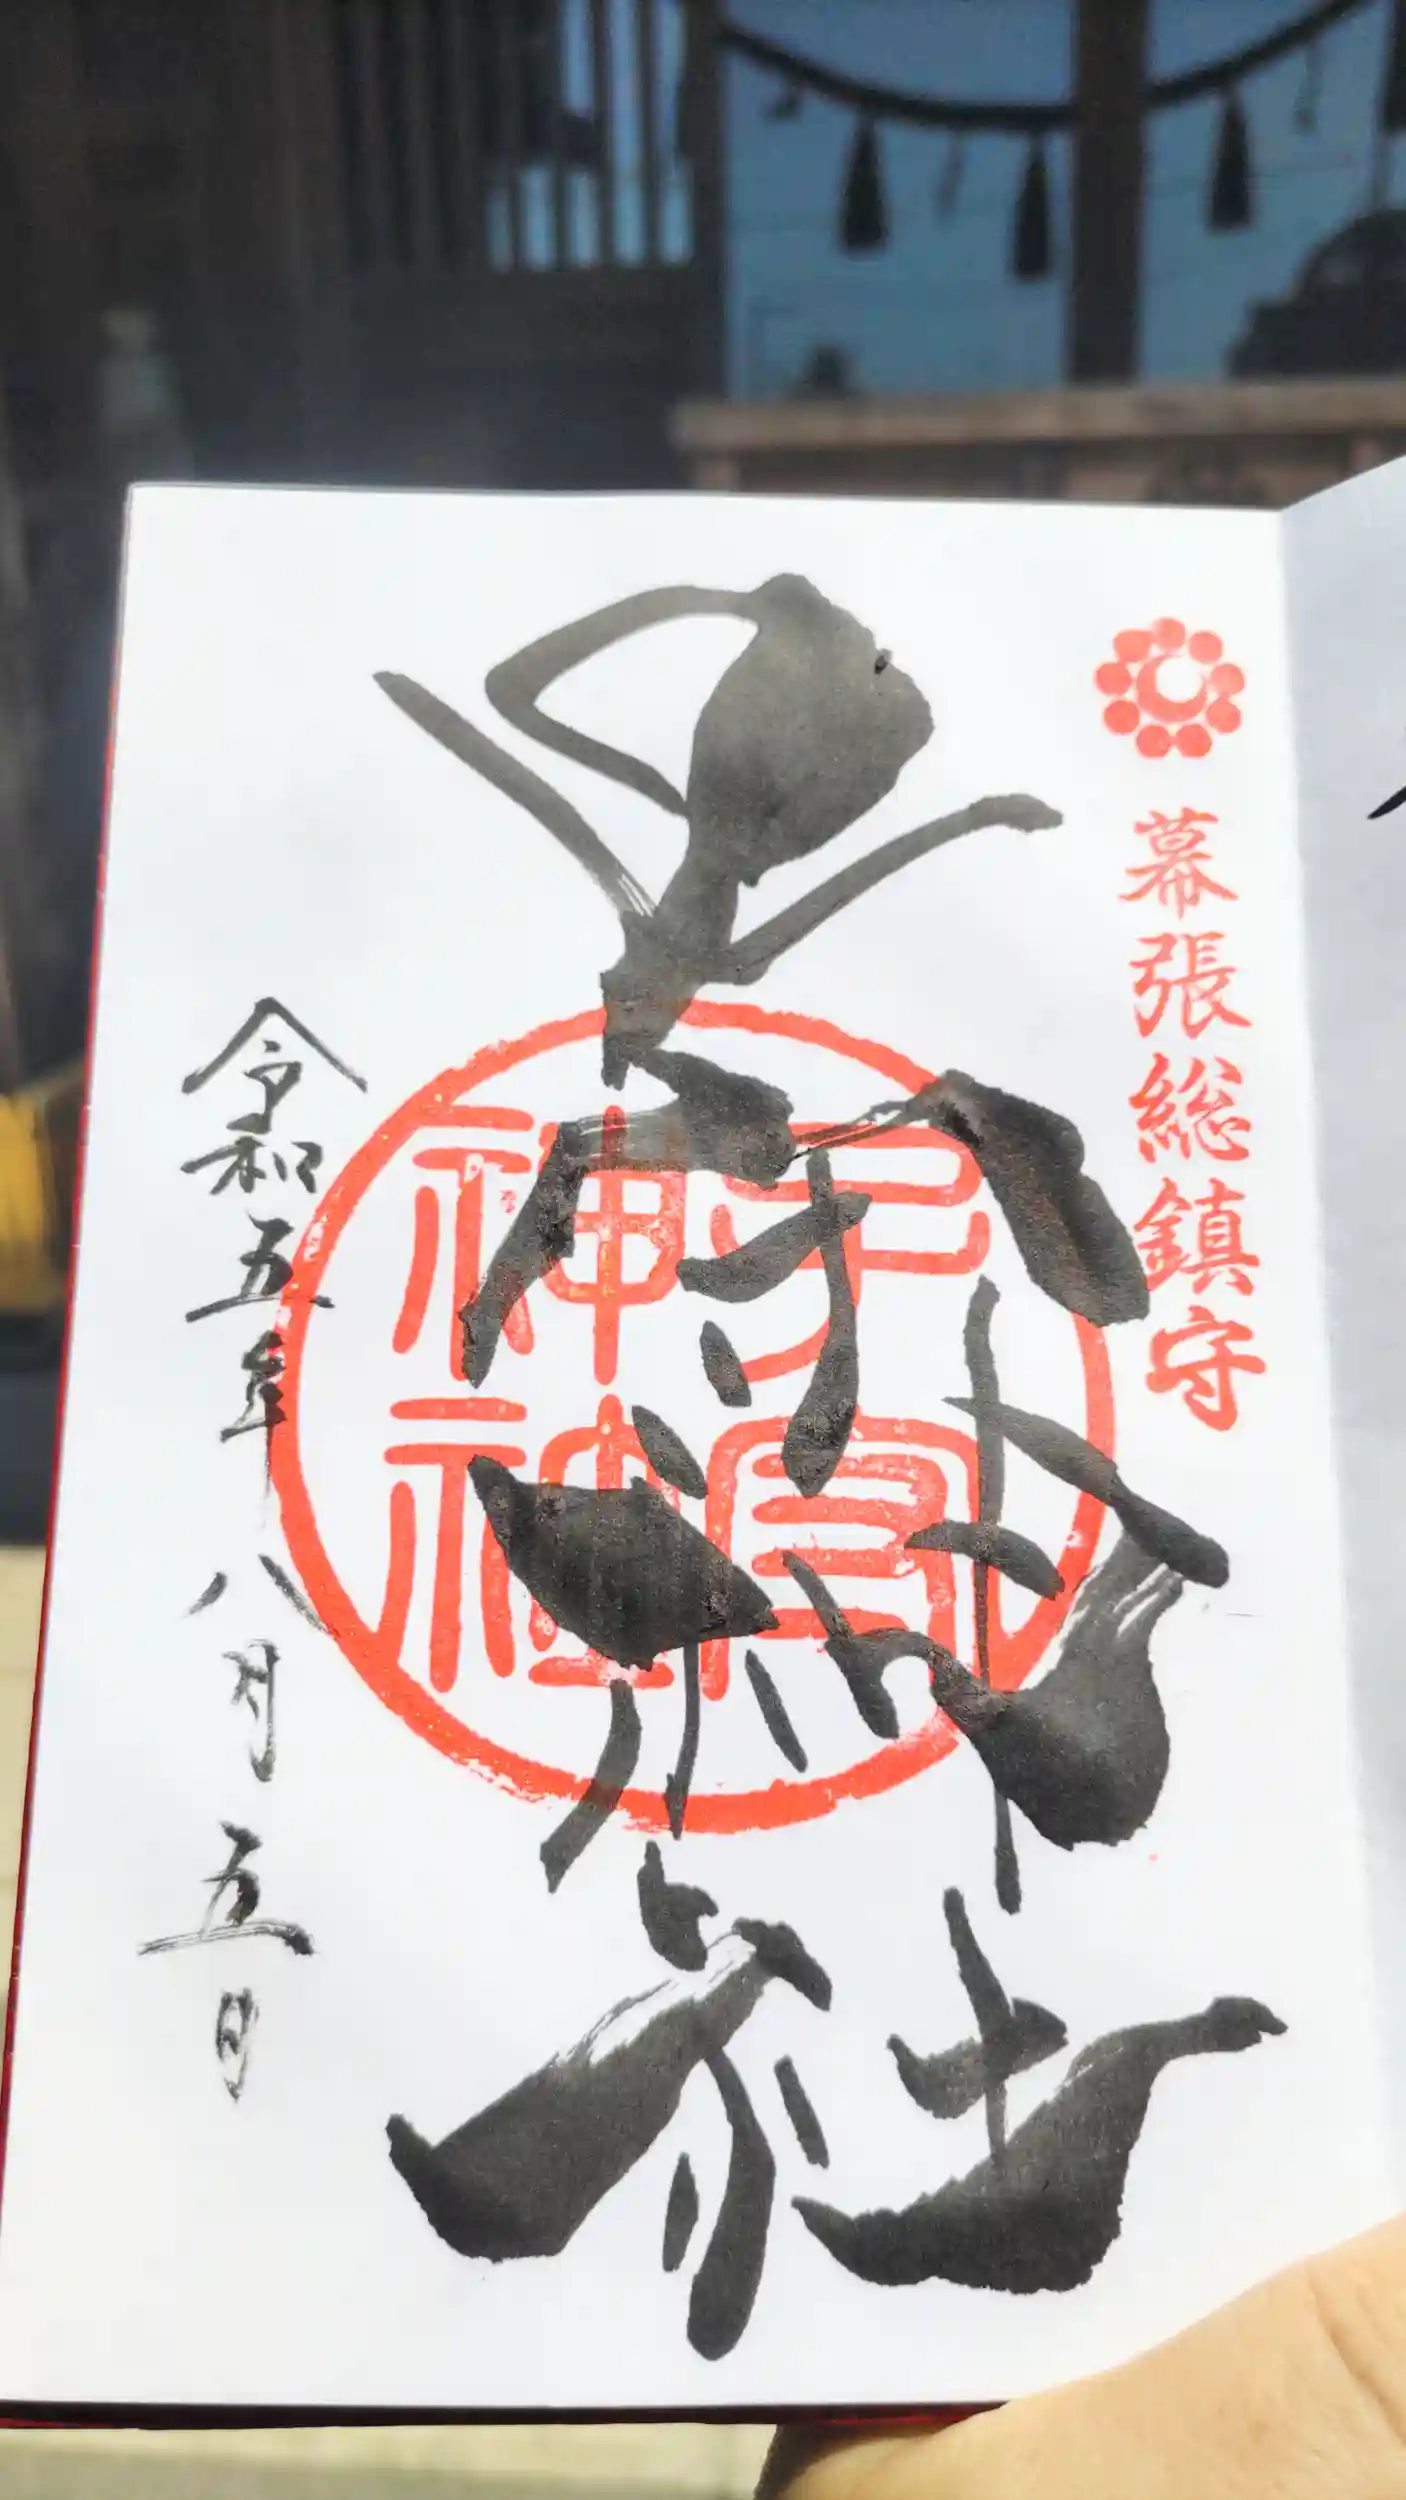 幕張総鎮守
子守神社
子守
神社
令和五年八月五日